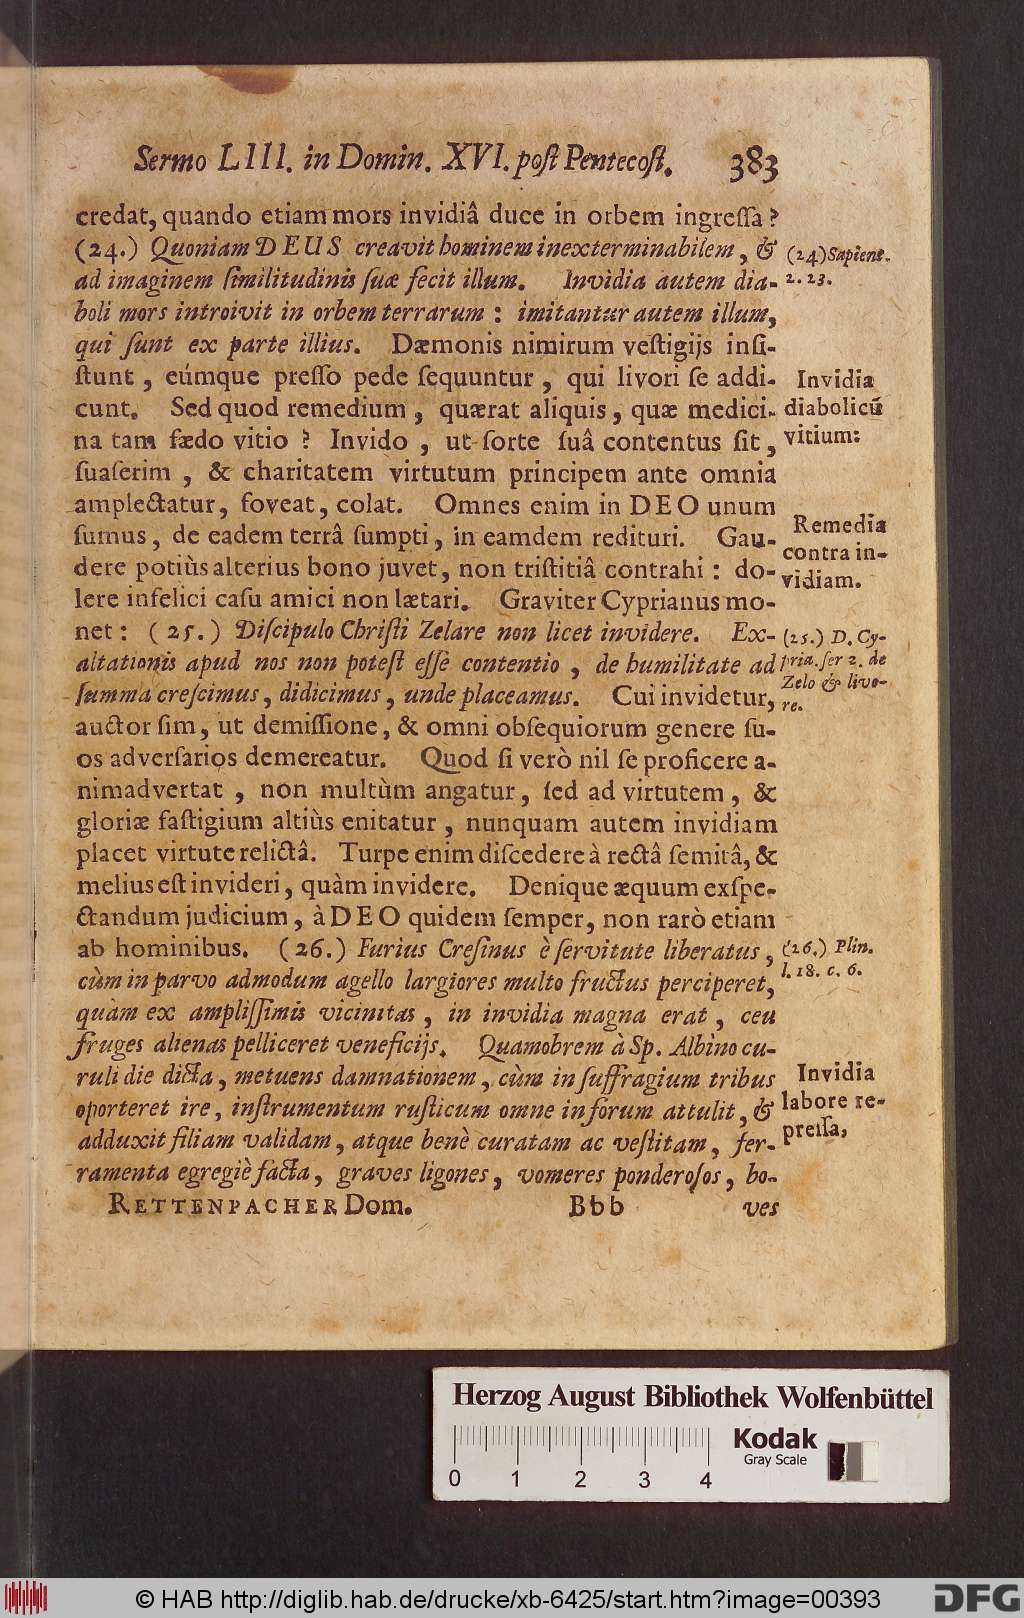 Sermo LIII. in Domin. XVI. poſt Pentecoſt. 383
credat, quando etiam mors invidiâ duce in orbem ingreſſa?
(24.) Quoniam DEUS creavit hominem inexterminabilem, &
ad imaginem ſimilitudinis ſuæ fecit illum. Invidia autem dia-
boli mors introivit in orbem terrarum: imitantur autem illum,
qui ſunt ex parte illius. Dæmonis nimirum veſtigijs inſi-
ſtunt, eúmque preſſo pede ſequuntur, qui livori ſe addi-
cunt. Sed quod remedium, quærat aliquis, quæ medici-
na tam fædo vitio? Invido, ut ſorte ſuâ contentus ſit,
ſuaſerim, & charitatem virtutum principem ante omnia
amplectatur, foveat, colat. Omnes enim in DEO unum
ſumus, de eadem terrâ ſumpti, in eamdem redituri. Gau-
dere potiùs alterius bono juvet, non triſtitiâ contrahi: do-
lere infelici caſu amici non lætari. Graviter Cyprianus mo-
net: (25.) Diſcipulo Chriſti Zelare non licet invidere. Ex-
altationis apud nos non poteſt eſſe contentio, de humilitate ad
ſumma creſcimus, didicimus, unde placeamus. Cui invidetur,
auctor ſim, ut demiſſione, & omni obſequiorum genere ſu-
os adverſarios demereatur. Quod ſi verò nil ſe proficere a-
nimadvertat, non multùm angatur, ſed ad virtutem, &
gloriæ faſtigium altiùs enitatur, nunquam autem invidiam
placet virtute relictâ. Turpe enim diſcedere à rectâ ſemitâ, &
melius eſt invideri, quàm invidere. Denique æquum exſpe-
ctandum judicium, à DEO quidem ſemper, non rarò etiam
ab hominibus. (26.) Furius Creſinus è ſervitute liberatus,
cùm in parvo admodum agello largiores multo fructus perciperet,
quàm ex ampliſſimis vicinitas, in invidia magna erat, ceu
fruges alienas pelliceret veneficijs. Quamobrem à Sp. Albino cu-
ruli die dicta, metuens damnationem, cùm in ſuffragium tribus
oporteret ire, inſtrumentum ruſticum omne in forum attulit, &
adduxit filiam validam, atque benè curatam ac veſtitam, fer-
ramenta egregiè facta, graves ligones, vomeres ponderoſos, bo-
RETTENPACHER Dom. Bbb ves
(24) Sapient.
2. 23.
Invidia
diabolicũ
vitium:
Remedia
contra in-
vidiam.
(25.) D. Cy-
pria. ſer 2. de
Zelo & livo-
re.
(26.) Plin.
l. 18. c. 6.
Invidia
labore re-
preſſa,
Herzog August Bibliothek Wolfenbüttel
0 1 2 3 4
Kodak
Gray Scale
© HAB http://diglib.hab.de/drucke/xb-6425/start.htm?image=00393
DFG